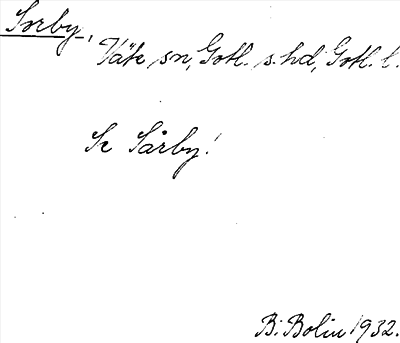 Sorby,
Väte sn, Gotl. s. hd, Gotl. l.
Se Sårby!
B. Bolin 1932.